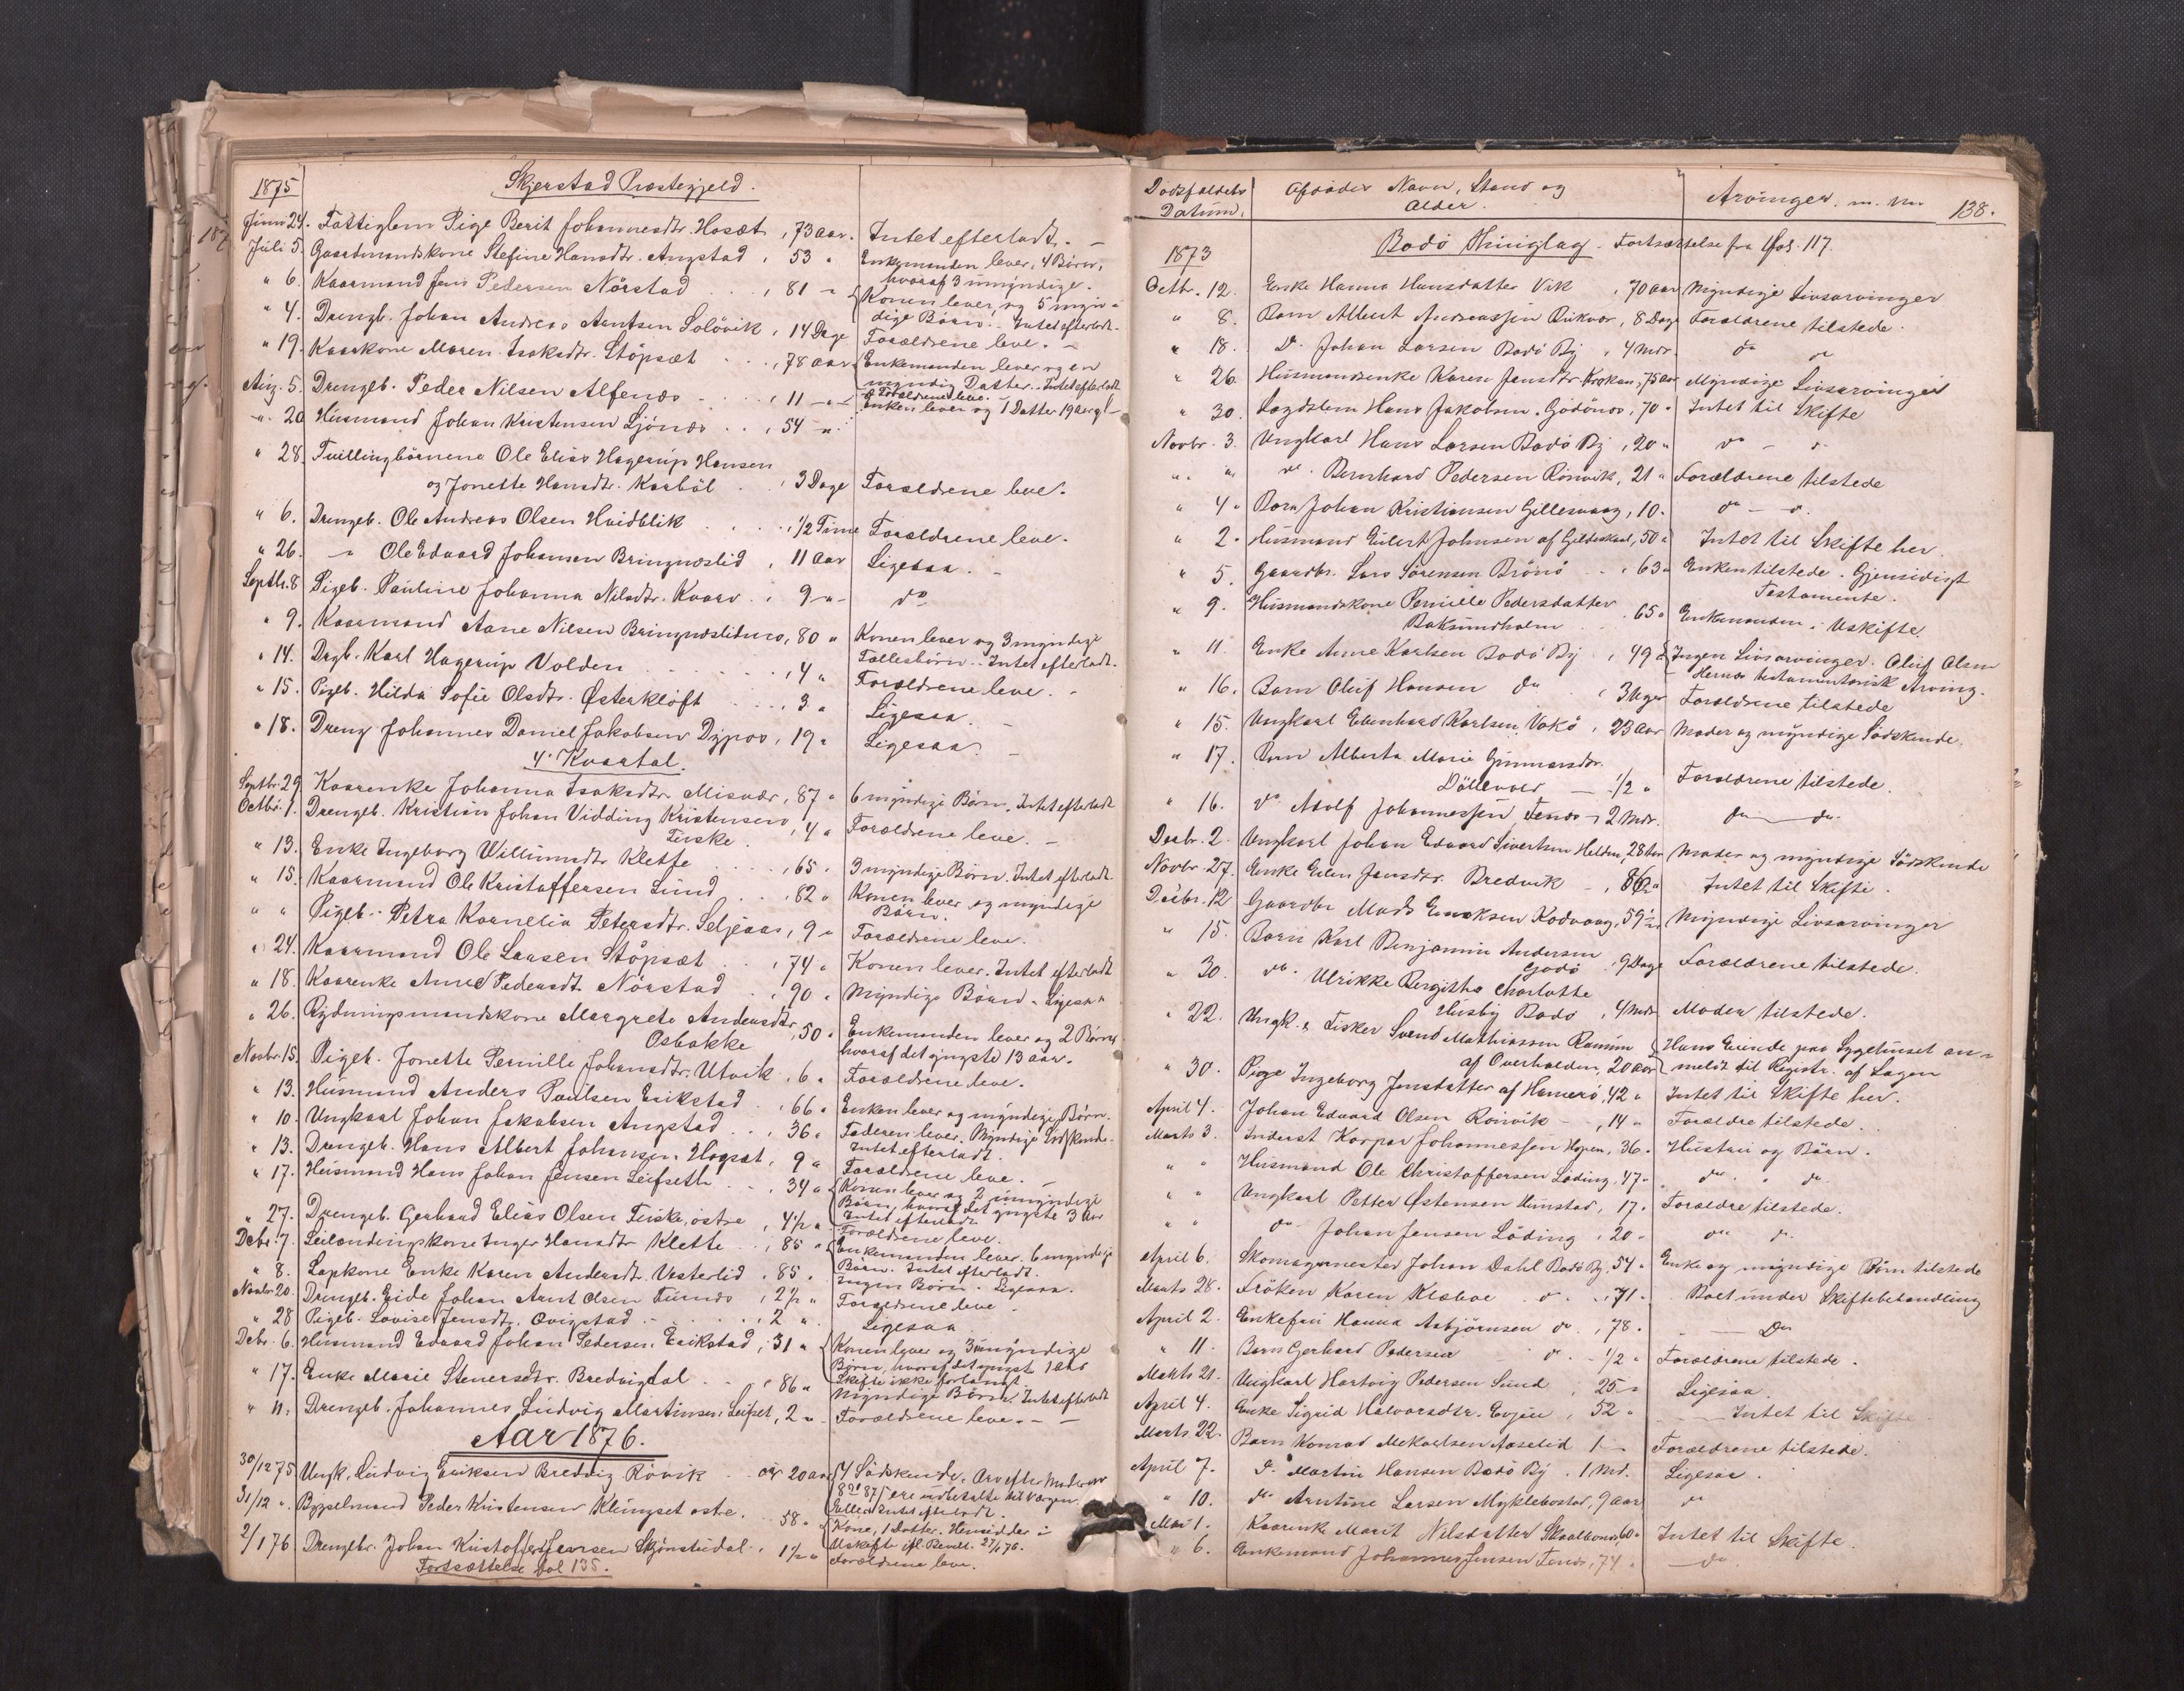 1875 Skjerstad Præstegjeld.
Juni 24. Fattiglem Pige Berit Johannesdtr. Hosæt, 73 Aar. Intet efterladt. –
Juli 5. Gaardmandskone Stefine Hansdtr. Angstad, 53 " Enkemanden lever, 4 Børn,
hvoraf 3 umyndige.
" 6. Kaarmand Jens Pedersen Nörstad . . , 81 " Konen lever, og 5 myn-
dige Börn. Intet efterladt.
" 4. Drengb. Johan Andreas Arntsen Solövik, 14 Dage Forældrene leve. –
" 19. Kaarkone Maren Isaksdtr. Stöpsæt . . , 78 Aar Enkemanden lever og en
myndig Datter. Intet efterladt
Aug. 5. Drengeb. Peder Nilsen Alfenes . . , 11 – " – Forældrene leve.
" 20 Husmand Johan Kristensen Ljönes . . , 54 " Enken lever og 1 Datter 19 Aar gl.
" 28. Tvillingbörnene Ole Elias Hagerup Hansen
og Jonette Hansdtr. Karböl . , 3 Dage Forældrene leve.
" 6. Drengeb. Ole Andreas Olsen Hvidblik . . , 1/2 Time Forældrene leve.
" 26. – " Ole Edvard Johansen Bringneslid , 11 Aar Ligesaa. –
Septbr. 8 Pigeb. Pauline Johanna Nilsdtr. Kvarv . , 9 – " – do
" 9. Kaarmand Aane Nilsen Bringneslid , 80 " Konen lever og 3 myndige
Fællesbørn. Intet efterladt.
" 14. Drgb. Karl Hagerup Volden . . , 4 " Forældrene leve. –
" 15. Pigeb. Hilda Sofie Olsdtr. Østerkløft . . , 3 " Ligesaa. –
" 18. Dreng Johannes Daniel Jakobsen Djupos , 19 " Ligesaa. –
4. Kvartal.
Septbr. 29 Kaarenke Johanna Isaksdtr. Misvær , 87 " 6 myndige Børn. Intet efterladt
Octbr. 1. Drengeb. Kristian Johan Vidding Kristensen
Fiske . , 4 " Forældrene leve. –
" 13. Enke Ingeborg Villumsdtr. Kletfe . . , 65 . 3 myndige Börn. Intet efterladt.
" 15. Kaarmand Ole Kristoffersen Lund . . , 82 " Konen lever og myndige
Børn.
" " Pigeb. Petra Kornelia Petersdtr. Seljeaas , 9 " Forældrene leve.
" 24. Kaarmand Ole Larsen Stöpsæt . . , 74 " Konen lever. Intet efterladt
" 18. Kaarenke Anne Pedersdt. Nörstad . , 90 " Myndige Börn. Ligesaa
" 26. Rydningsmandskone Margrete Andersdtr.
Osbakke , 50 " Enkemanden lever og 2 Börn,
hvoraf det yngste 13 Aar.
Novbr. 15. Pigeb. Jonette Pernille Johansdtr. Utvik , 6 " Forældrene leve.
" 13. Husmand Anders Paulsen Erikstad . , 66 " Enken lever og myndige Børn.
" 10. Ungkarl Johan Jakobsen Angstad . , 36 " Faderen lever. Myndige Södskende.
Intet efterladt.
" 13. Drengeb. Hans Albert Johansen Hogsæt , 9 " Forældrene leve. –
" 17. Husmand Hans Johan Jensen Leifseth . , 34 " Konen lever og 2 umyndige
Børn, hvoraf det yngste 3 Aar
Intet efterladt
" 27. Drengeb. Gerhard Elias Olsen Fiske, östre , 4 1/2 " Forældrene leve.
Debr. 7. Leilændingskone Inger Hansdtr Klette . , 85 " Enkemanden lever. 6 myndige
Børn. Intet efterladt.
" 8. Lapkone Enke Karen Andersdt. Vesterlid , 85 . Ingen Børn. Ligesaa.
Novbr. 20. Drengeb. Eide Johan Arnt Olsen Tuenes , 2 1/2 " Forældrene leve.
" 28 Pigeb. Lovise Jensdt. Qvigstad . . , 2 " Ligesaa
Debr. 6. Husmand Edvard Johan Pedersen Erikstad , 31 " Konen lever og 3 umyndige
Børn, hvoraf det yngst 1 Aar
Skifte ikke forlangt
" 17. Enke Marie Stenersdtr. Bredvigdal . , 86 " Myndige Börn. Intet efterladt
" 11. Drengeb. Johannes Ludvig Martinsen Leifset , 2 " Forældrene leve. – –
Aar 1876.
30/12 75 Ungk. Ludvig Eriksen Bredvig Rövik . . 20 Aar 4 Södskende. Arv efter Moderen
ere indbetalte til Værgen.
Ellers Intet efterladt.
31/12 " Bygselmand Peder Kristensen Klungset östre . . 58 " Kone, 1 Datter. Hensidder i
Uskifte ifl. Bevill. 27/1 76.
2/1 76 Drengebr. Johan Kristoffer Larsen Skjönstudal . 1 1/2 " Forældrene leve.
Fortsættelse Fol 135.
Dödsfaldets Afdödes Navn, Stand og Arvinger m. m. 138.
Datum. Alder.
1873 Bodö Thinglag. Fortsættelse fra Fol. 117.
Octbr. 12. Enke Hanna Hansdatter Vik , 70 Aar Myndige Livsarvinger
" 8. Barn Albert Andreassen Rikvor , 8 Dage Forældrene tilstede.
" 18. Do. Johan Larsen Bodö By , 4 Mdr. do do
" 26. Husmandsenke Karen Jensdtr. Krokan , 75 Aar Myndige Livsarvinger
" 30. Lægdslem Hans Jakobsen Godönes , 70 " Intet til Skifte
Novbr. 3. Ungkarl Hans Larsen Bodö By , 20 " do – do
" " do. Bernhard Pedersen Rönvik , 21 " Forældrene tilstede
" 4 " Barn Johan Kristiansen Gillesvaag , 10 . do – do.
" 2 . Husmand Eilert Johnsen af Gildeskaal , 50 " Intet til Skifte her.
" 5. Gaardbr. Lars Sörensen Brönö . , 63 " Enken tilstede. Gjensidigt
Testamente.
" 9. Husmandskone Pernille Pedersdatter
Baksundholm . . 65 " Enkemanden i Uskifte.
" 11. Enke Anne Karlsen Bodö By , 49 " Ingen Livsarvinger. Oluf Olsen
Hernes testamentarisk Arving.
" 16. Barn Oluf Hansen do , 3 Uger Forældrene tilstede
" 15. Ungkarl Edenhard Karlsen Vokö , 23 Aar Moder og myndige Södskende.
" 17. Barn Alberta Marie Gunnarsdtr.
Döllevold – 1/2 " Forældrene tilstede.
" 16. do Adolf Johannessen Fenes , 2 Mdr. do – do.
Decbr. 2. Ungkarl Johan Edvard Sivertsen Helden , 28 Aar Moder og myndige Södskende
Novbr. 27. Enke Ellen Jensdtr. Bredvik – , 86 " Intet til Skifte.
Decbr. 12 Gaardbr. Mads Enoksen Kodvaag , 59 1/2 Myndige Livsarvinger
" 15. Barn Karl Benjamin Andersen
Godö , 9 Dage Forældrene tilstede.
" 30. do. Ulrikke Bergitha Charlotte
Husby Bodö , 4 Mdr. Moder tilstede.
" 22. Ungk. & Fisker Svend Mathiassen Ranum Hans Eiende paa Sygehuset an-
af Overhalden , 20 Aar meldt til Registr. af Lagen
" 30. Pige Ingeborg Jensdatter af Hamerö , 42 " Intet til Skifte her.
April 4. Johan Edvard Olsen Rönvik – , 14 " Forældre tilstede.
Marts 3. Inderst Kaspar Johannessen Hopen , 36 . Hustru og Börn.
" " Husmand Ole Christoffersen Löding , 47 " do " do
" " Ungkarl Petter Østensen Hunstad , 17 . Forældre tilstede.
" " do Johan Jensen Löding , 20 " do do
April 6. Skomagermester Johan Dahl Bodö By , 54 " Enke og myndige Börn tilstede
Marts 28. Fröken Karen Klæboe do. , 71 . Boet under Skiftebehandling
April 2. Enkefru Hanna Asbjörnsen do. , 78 . – Do
" 11. Barn Gerhard Pedersen do. , 1/2 " Forældrene tilstede.
Marts 21. Ungkarl Hartvig Pedersen Sund , 25 " Ligesaa.
April 4. Enke Sigrid Halvorsdtr. Evjen , 52 " – Intet til Skifte
Marts 22. Barn Konrad Mekaelsen Aaselid 1 – Forældrene tilstede.
April 7. Do. Martin Hansen Bodö By . 1 Md. Ligesaa.
" 10. do Arntine Larsen Myklebostad , 9 Aar do
Mai 1. Kaarenke Marit Nilsdatter Skaalbones , 60 " Intet til Skifte.
" 6. Enkemand Johannes Jensen Fenes , 74 " do